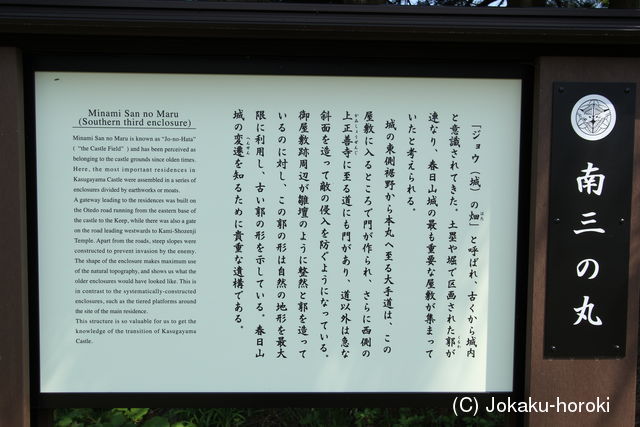 Minami San no Maru
(Southern third enclosure)
Minami San no Maru is known as "Jo-no-Hata"
( "the Castle Field" ) and has been perceived as
belonging to the castle grounds since olden times.
Here, the most important residences in
Kasugayama Castle were assembled in a series of
enclosures divided by earthworks or moats.
A gateway leading to the residences was built on
the Otedo road running from the eastern base of
the castle to the Keep, while there was also a gate
on the road leading westwards to Kami-Shozenji
Temple. Apart from the roads, steep slopes were
constructed to prevent invasion by the enemy.
The shape of the enclosure makes maximum use
of the natural topography, and shows us what the
older enclosures would have looked like. This is
in contrast to the systematically-constructed
enclosures, such as the tiered platforms around
the site of the main residence.
This structure is so valuable for us to get the
knowledge of the transition of Kasugayama
Castle.
「ジョウ（城）の畑」と呼ばれ、古くから城内
と意識されてきた。土塁や堀で区画された郭が
連なり、春日山城の最も重要な屋敷が集まって
いたと考えられる。
城の東側裾野から本丸へ至る大手道は、この
屋敷に入るところで門が作られ、さらに西側の
上正善寺に至る道にも門があり、道以外は急な
斜面を造って敵の侵入を防ぐようになっている。
御屋敷跡周辺が雛壇のように整然と郭を造って
いるのに対し、この郭の形は自然の地形を最大
限に利用し、古い郭の形を示している。春日山
城の変遷を知るために貴重な遺構である。
南三の丸
(C) Jokaku-horoki